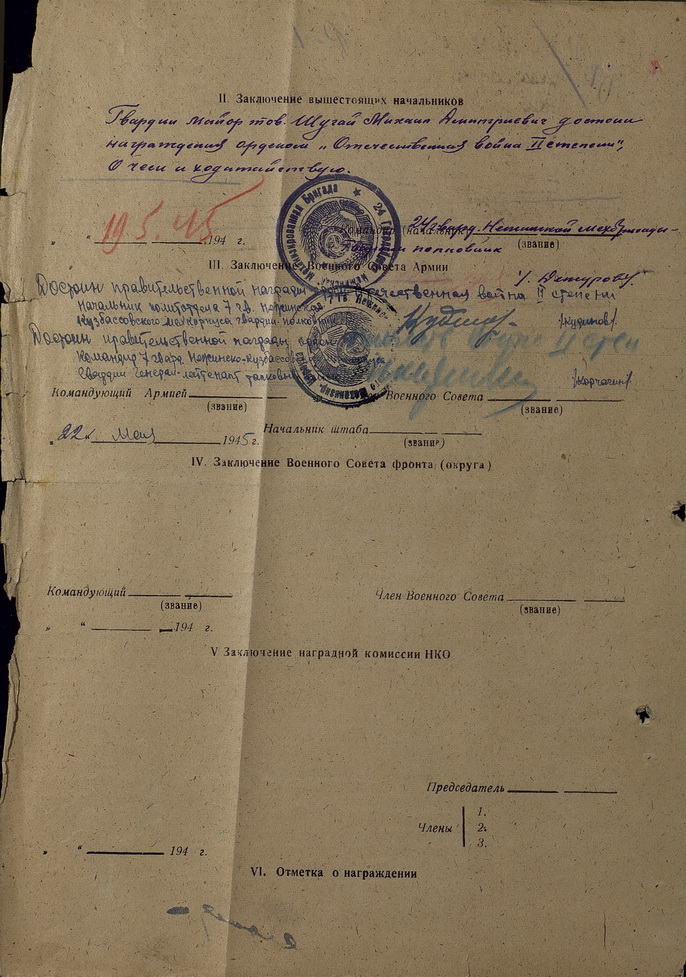 II. Заключение вышестоящих начальников
Гвардии Майор тов. Шугай Михаил Дмитриевич достоин
награждения орденом „Отечественная война II степени",
О чем и ходатайствую.
19 5. 45
„ “ 194 г.
24 гвард. Нежинской мехбригады-
полковник
(звание)
III. Заключение Военного Совета Армии
Достоин правительственной награды Отечественная война II степени
Начальник политотдела 7 гв. Нежинско-
Кузбассовского мехкорпуса гвардии полковник /Кудинов/
Достоин правительственной награды II степ
Командир 7 гвард. Нежинско-Кузбассовского
Гвардии генерал-лейтенант танковых /Корчагин/
Командующий Армией Военного Совета
(звание) (звание)
„22“ Мая 1945 г.
Начальник штаба
(звание)
IV. Заключение Военного Совета фронта (округа)
Командующий Член Военного Совета
(звание) (звание)
„ “ 194 г.
V Заключение наградной комиссии НКО
Председатель
Члены
1.
2.
3.
„ “ 194 г.
VI. Отметка о награждении